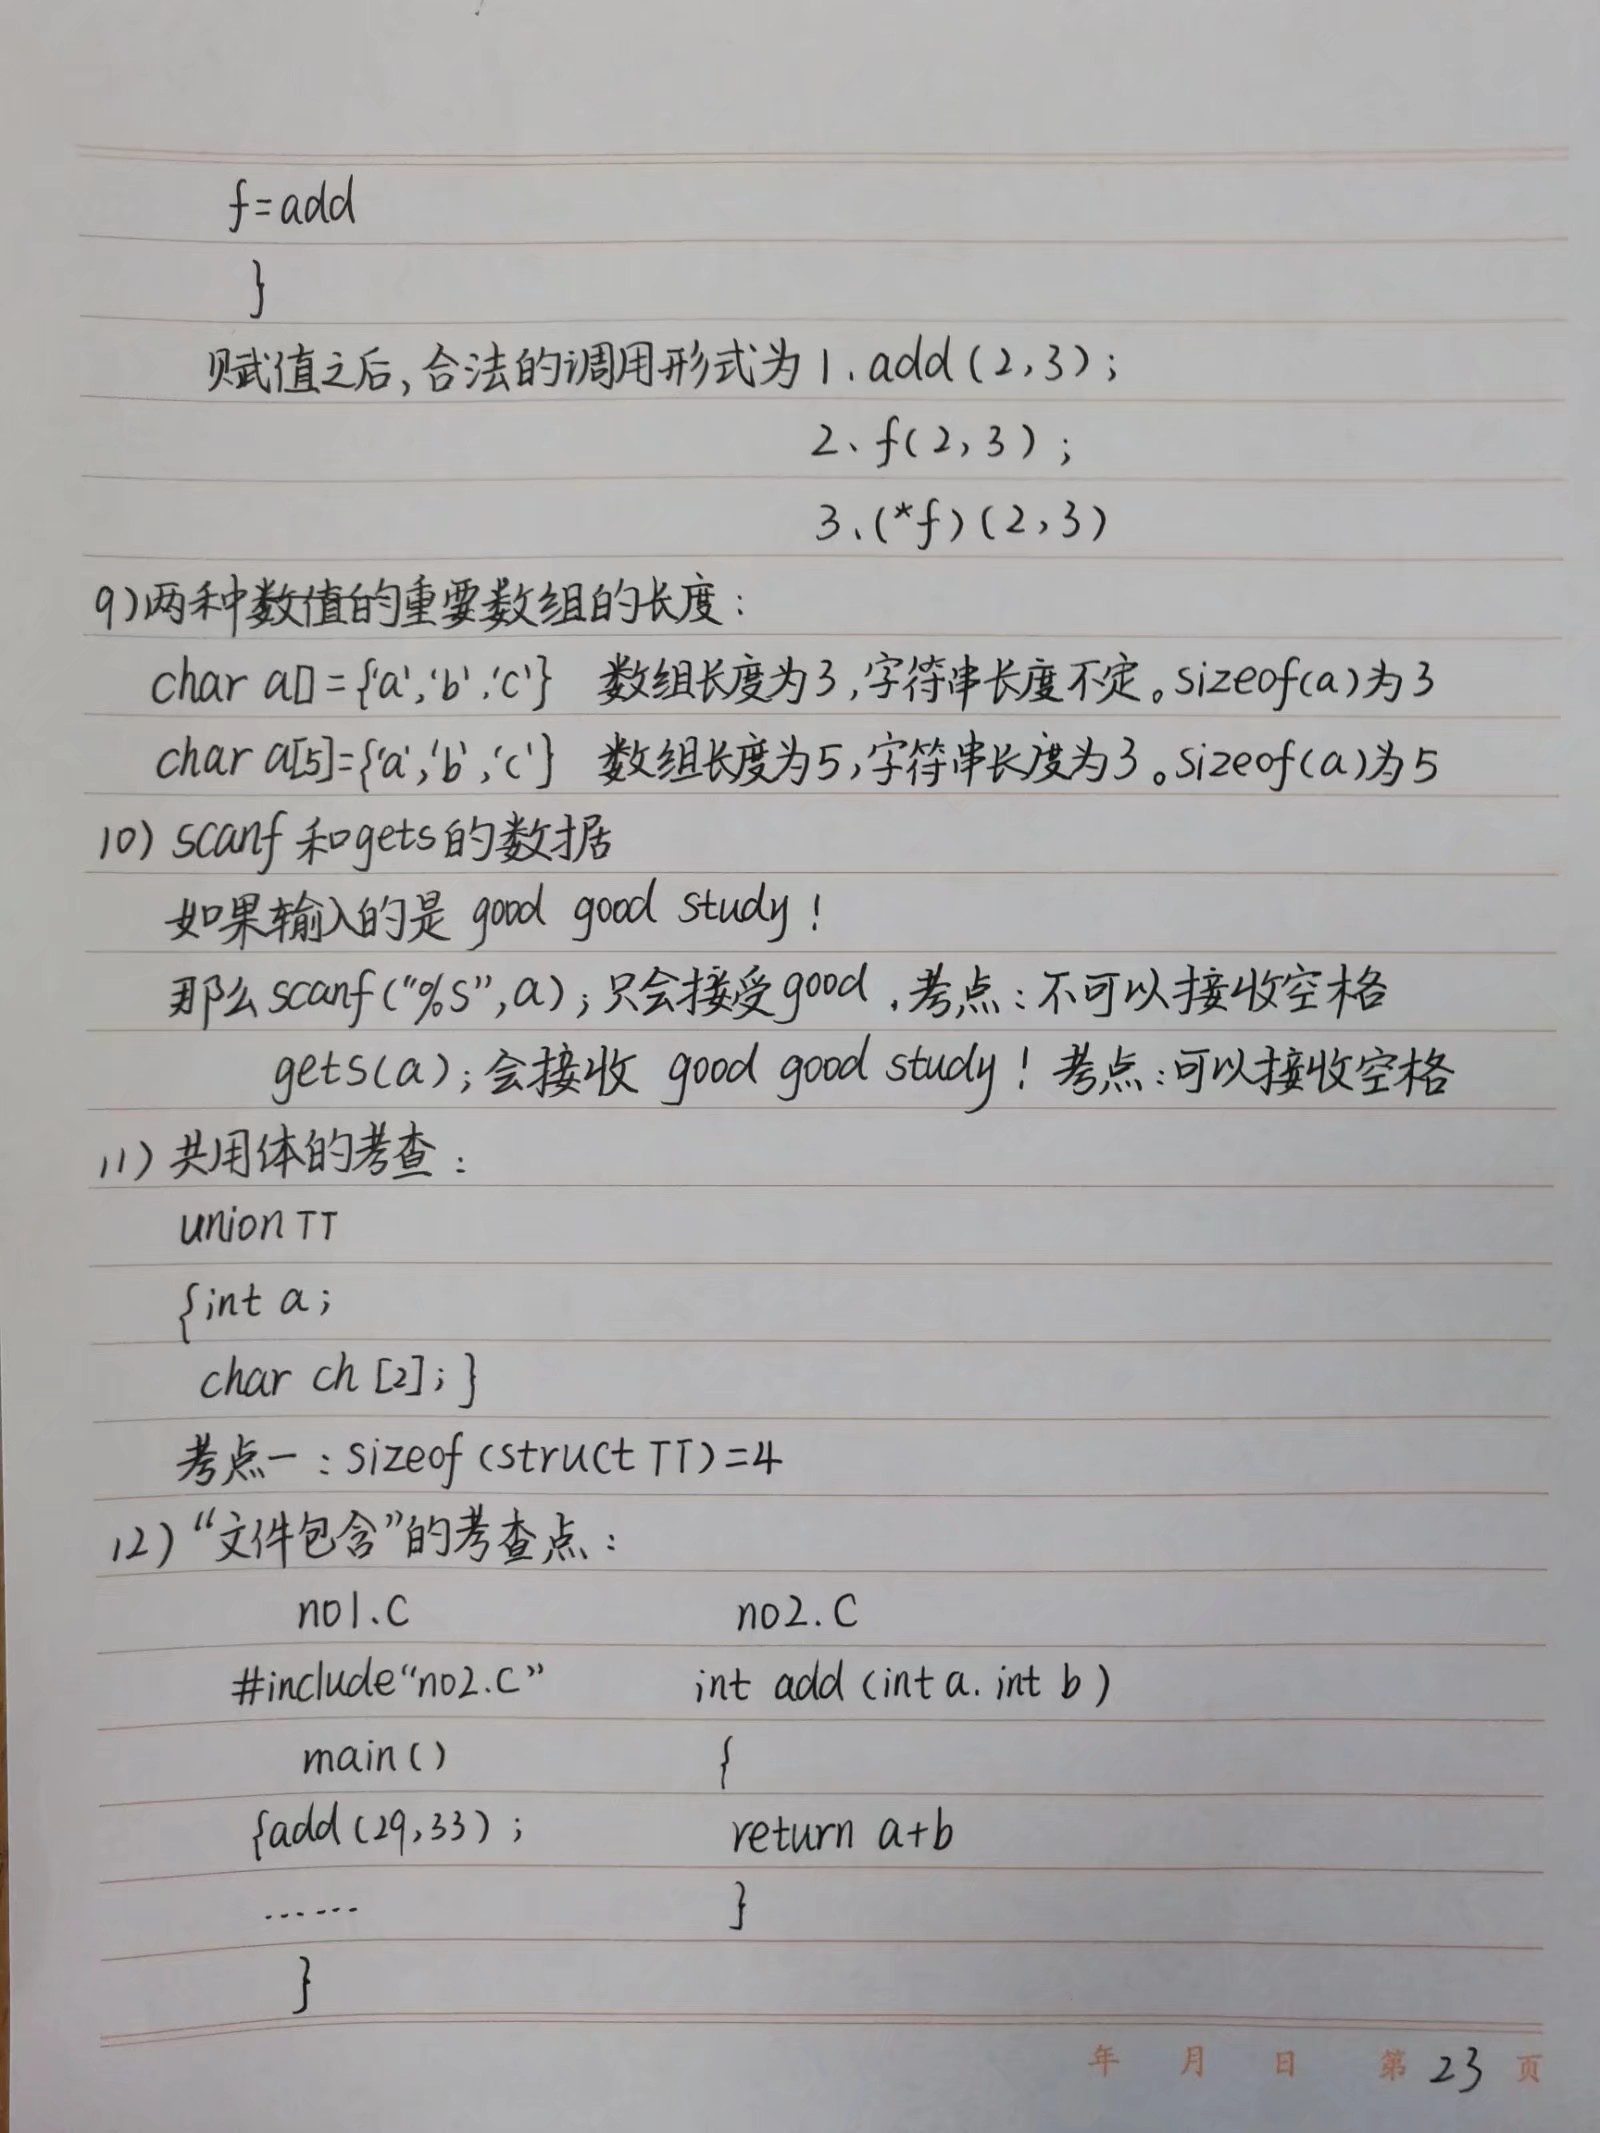 f=add
}
赋值之后,合法的调用形式为1.add(2,3);
2、f(2,3);
3、(*f)(2,3)
9)两种数值的重要数组的长度:
char a[]={'a','b','c'} 数组长度为3,字符串长度不定。sizeof(a)为3
char a[5]={'a','b','c'} 数组长度为5,字符串长度为3。sizeof(a)为5
10)scanf和gets的数据
如果输入的是 good good study!
那么scanf("%s",a);只会接受good,考点:不可以接收空格
gets(a);会接收 good good study!考点:可以接收空格
11)共用体的考查:
union TT
{int a;
char ch[2];}
考点一:sizeof(struct TT)=4
12)“文件包含”的考查点:
no1.C no2.C
#include“no2.C” int add(int a.int b)
main() {
{add(29,33); return a+b
...... }
}
年 月 日 第23页